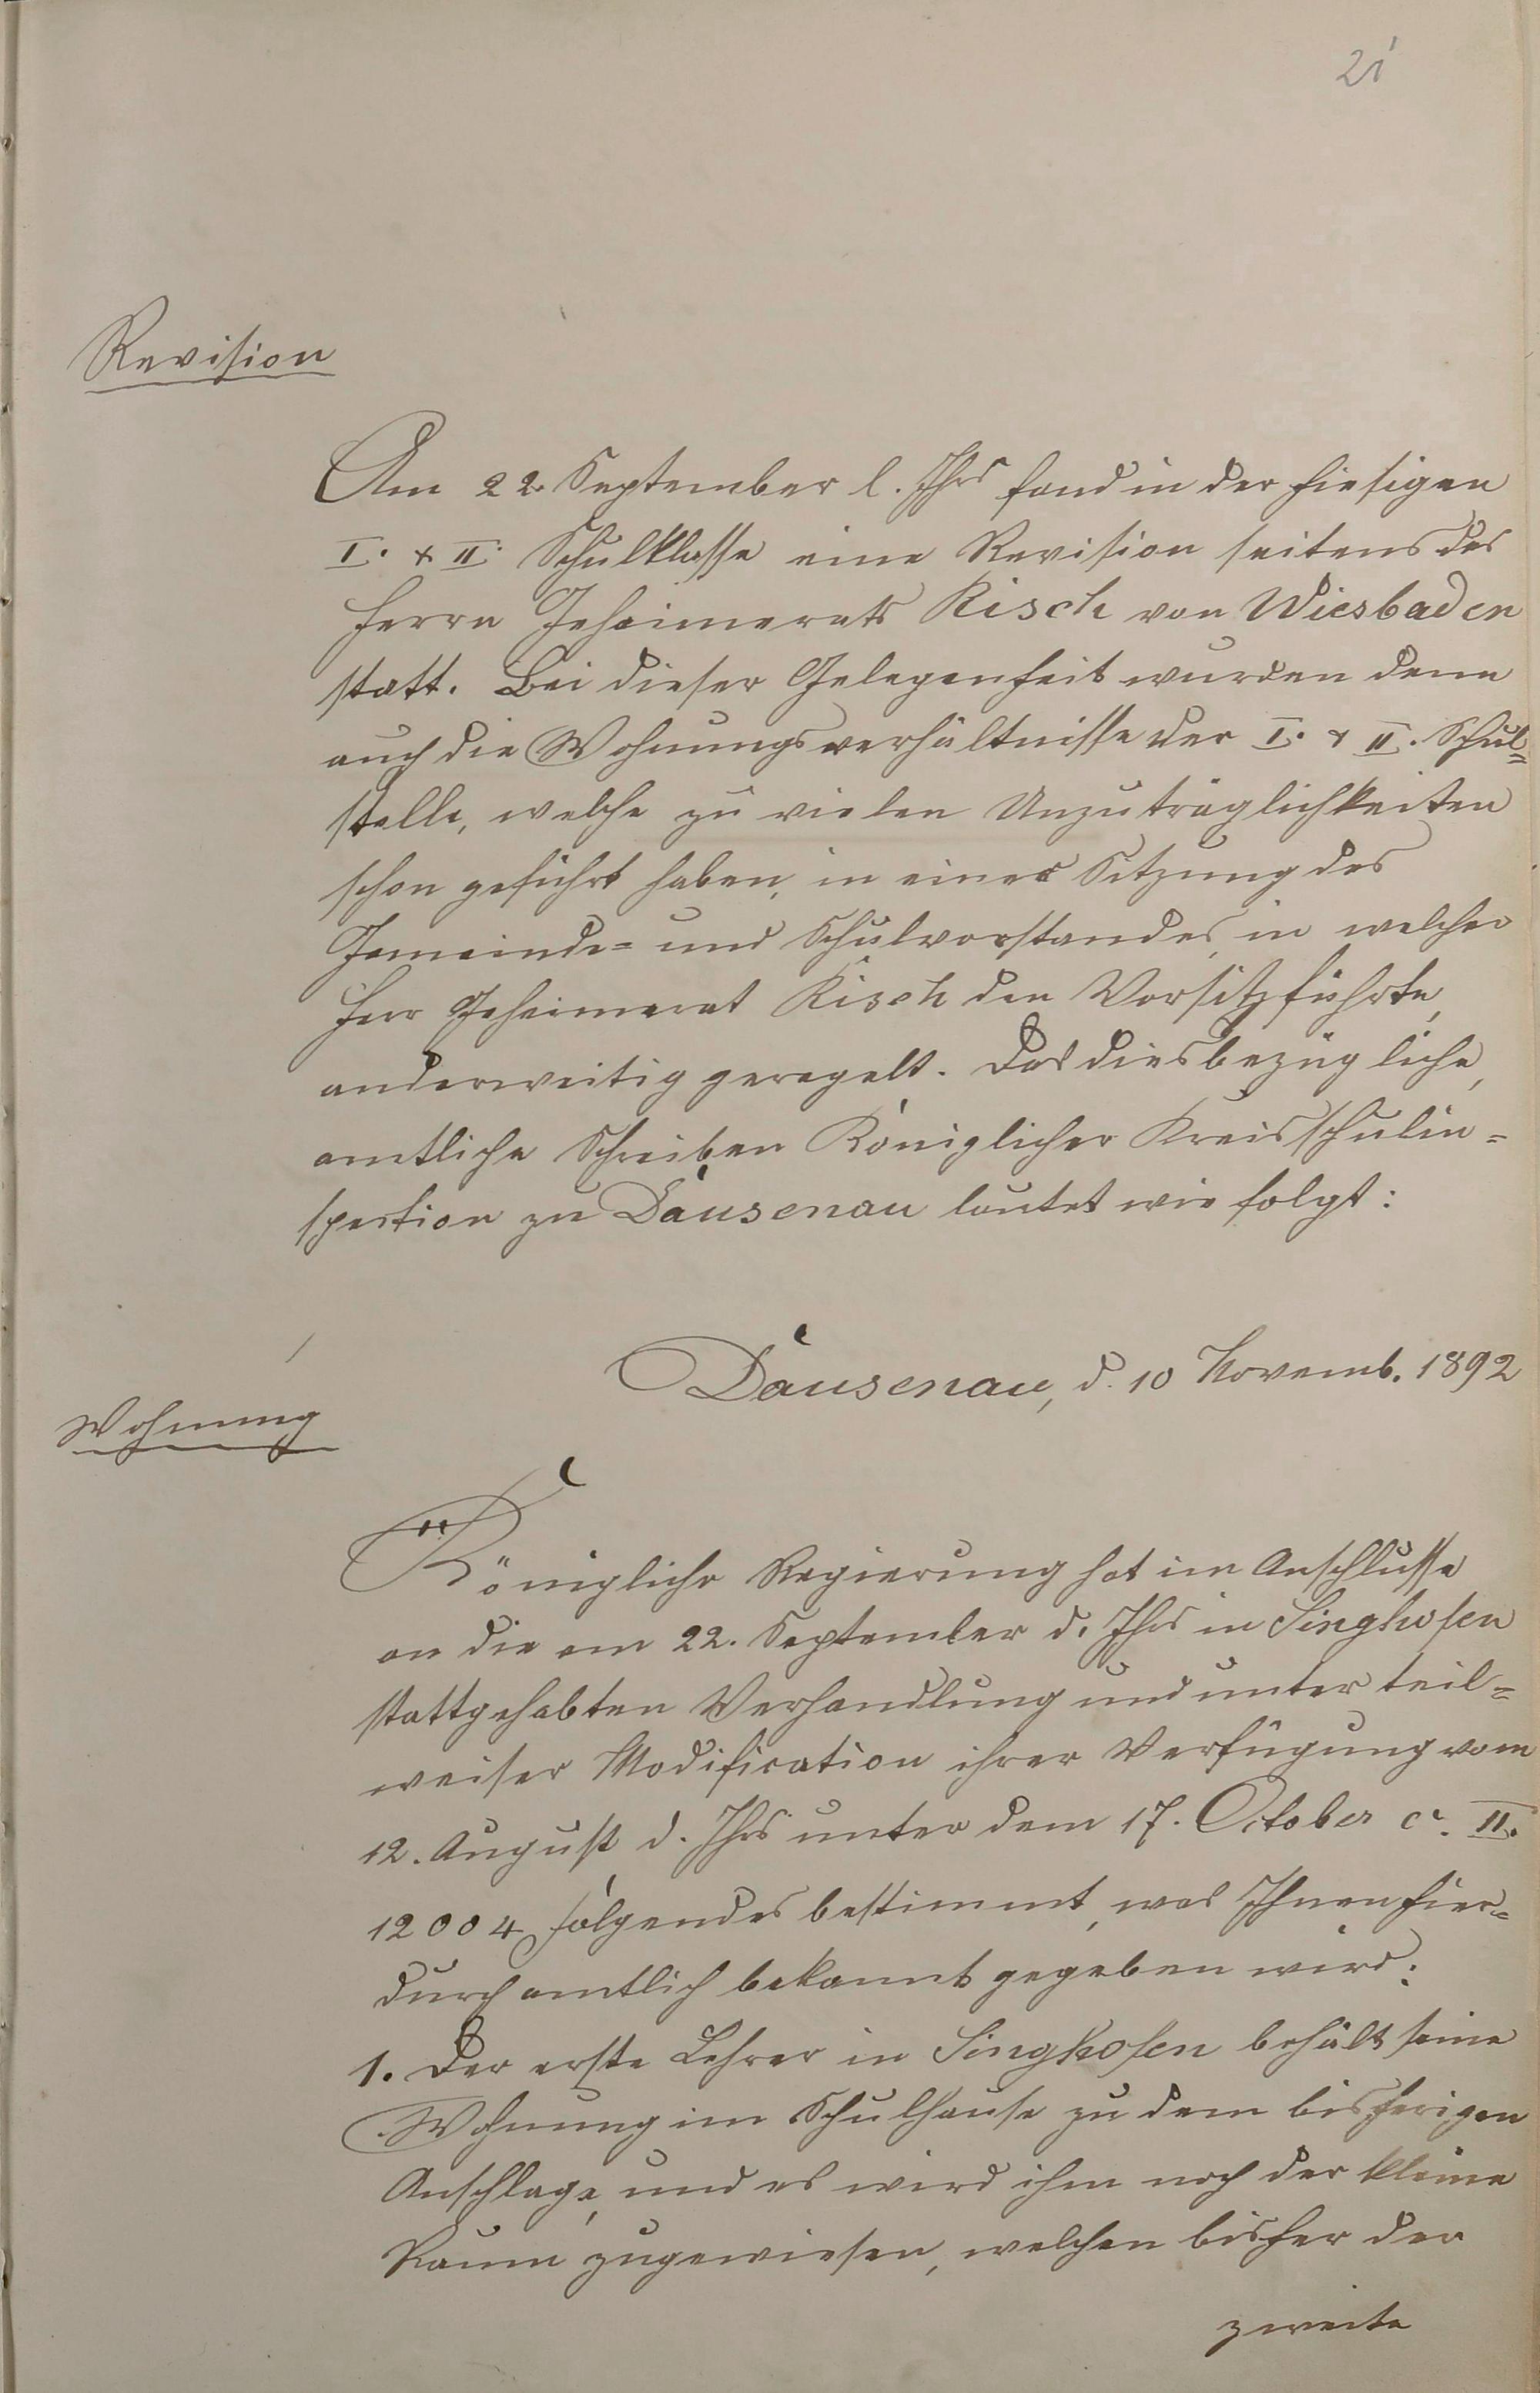 21
Revision
Am 22. September l. Jhrs fand in der hiesigen
I. & II. Schulklasse eine Revision seitens des
Herrn Geheimerats Risch von Wiesbaden
statt. Bei dieser Gelegenheit wurden denn
auch die Wohnungsverhältnisse der I. & II. Schul=
stelle, welche zu vielen Unzuträglichkeiten
schon geführt haben, in einer Sitzung des
Gemeinde= und Schulvorstandes, in welcher
Herr Geheimerat Risch den Vorsitz führte,
anderweitig geregelt. Das diesbezügliche,
amtliche Schreiben Königlicher Kreisschulin=
spection zu Dausenau lautet wie folgt:
Dausenau, d. 10 Novemb. 1892
Wohnung
Königliche Regierung hat im Anschlusse
an die am 22. September d. Jhrs in Singhofen
stattgehabten Verhandlung und unter teil=
weiser Modification ihrer Verfügung vom
12. August d. Jhrs unter dem 17. October c. II.
12004 folgendes bestimmt, was Ihnen hier=
durch amtlich bekannt gegeben wird:
1. Der erste Lehrer in Singhofen behält seine
Wohnung im Schulhause zu dem bisherigen
Anschlage, und es wird ihm noch der kleine
Raum zugewiesen, welchen bisher der
zweite